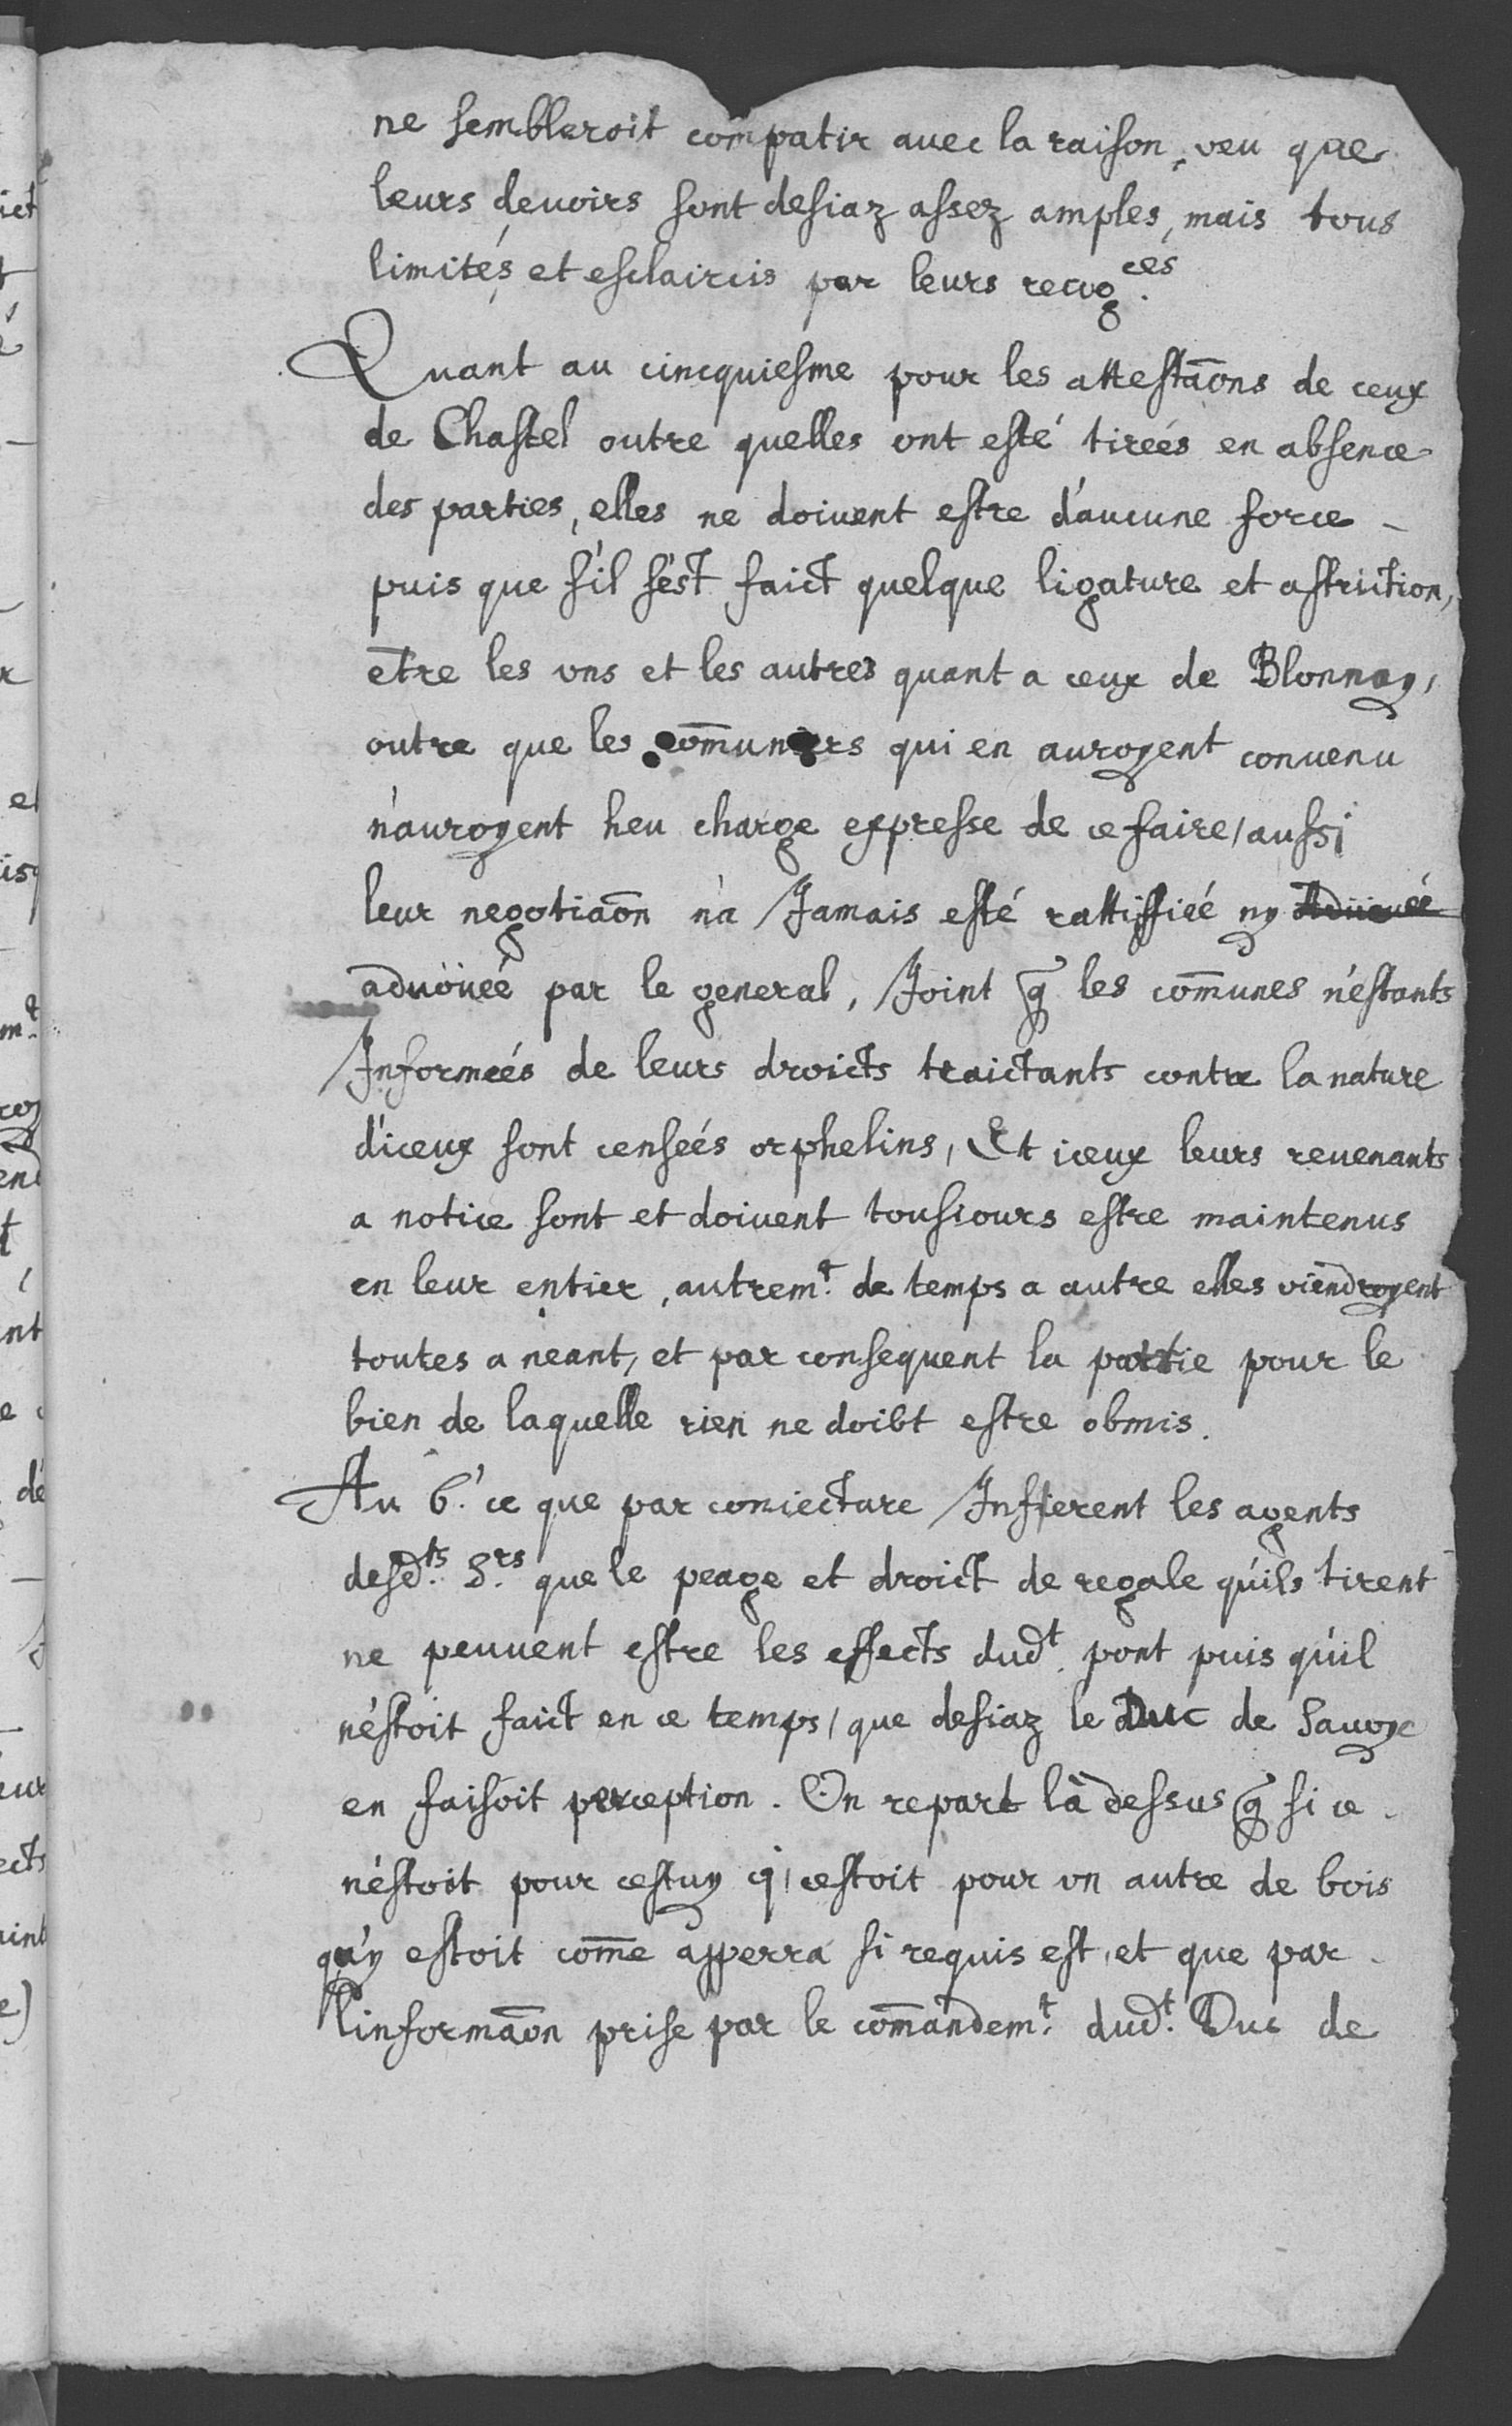 ne sembleroit compatir avec la raison, veu que
leurs devoirs sont desiaz assez amples, mais tous
limités et esclaircis par leurs recog.ces
Quant au cincquiesme pour les attestãons de ceux
de Chastel outre quelles ont esté tireés en absence
des parties, elles ne doivent estre d'aucune force -
puis que s'il s'est faict quelque ligature et astriction,
etre les vns et les autres quant a ceux de Blonnay,
outre que les com̄uniers qui en auroyent convenu
n'auroyent heu charge expresse de ce faire / aussi
leur negotiãon n'a Jamais esté rattiffieé ny
advoüeé par le general, Joint q̃ les com̄unes n'estants
Informeés de leurs droicts traictants contre la nature
d'iceux sont censeés orphelins, Et iceux leurs revenants
a notice sont et doivent tousiours estre maintenus
en leur entier, autrem.t de temps a autre elles viendroyent
toutes a neant, et par consequent la partie pour le
bien de laquelle rien ne doibt estre obmis.
Au 6. ce que par coniecture Infierent les agents
desd.ts S.rs que le peage et droict de regale qu'ils tirent
ne peuvent estre les effects dud.t pont puis qu'il
n'estoit faict en ce temps / que desiaz le Duc de Savoye
en faisoit perception. On repart là dessus q̃ si ce -
n'estoit pour cestuy cj, cestoit pour vn autre de bois
qu'y estoit com̄e apperra si requis est, et que par -
linformãon prise par le com̄andem.t dud.t Duc de